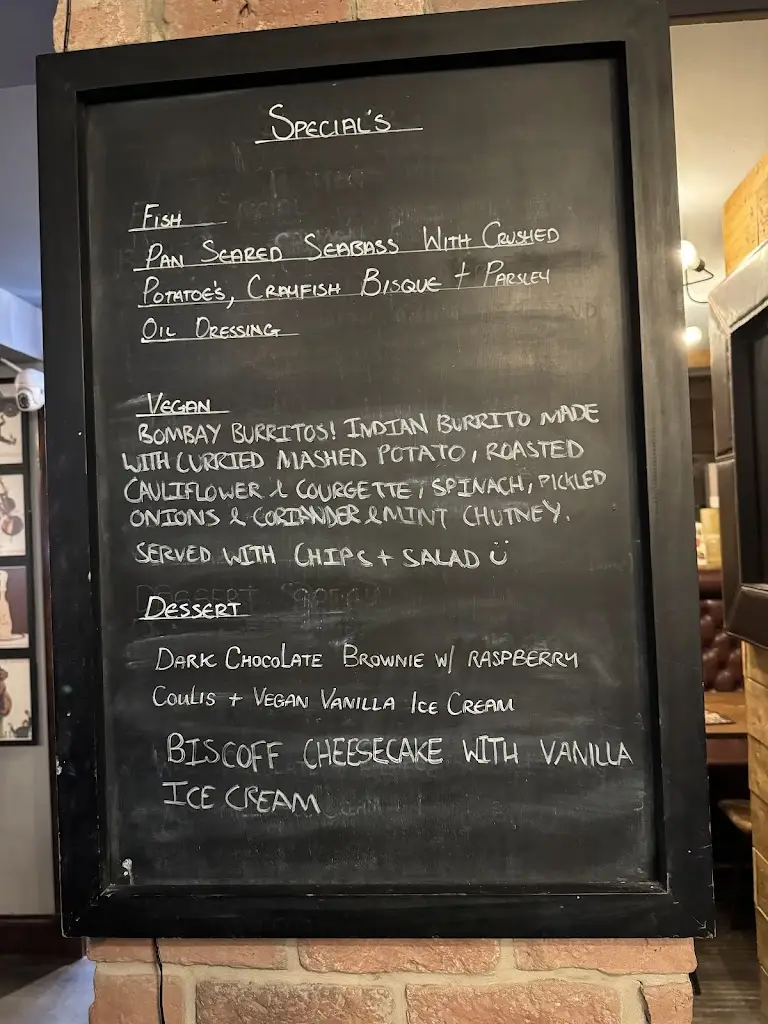 SPECIAL'S
FISH
PAN SEARED SEABASS WITH CRUSHED
POTATOE'S, CRAYFISH BISQUE + PARSLEY
OIL DRESSING
VEGAN
BOMBAY BURRITOS! INDIAN BURRITO MADE
WITH CURRIED MASHED POTATO, ROASTED
CAULIFLOWER & COURGETTE, SPINACH, PICKLED
ONIONS & CORIANDER & MINT CHUTNEY.
SERVED WITH CHIPS + SALAD Ü
DESSERT
DARK CHOCOLATE BROWNIE W/ RASPBERRY
COULIS + VEGAN VANILLA ICE CREAM
BISCOFF CHEESECAKE WITH VANILLA
ICE CREAM